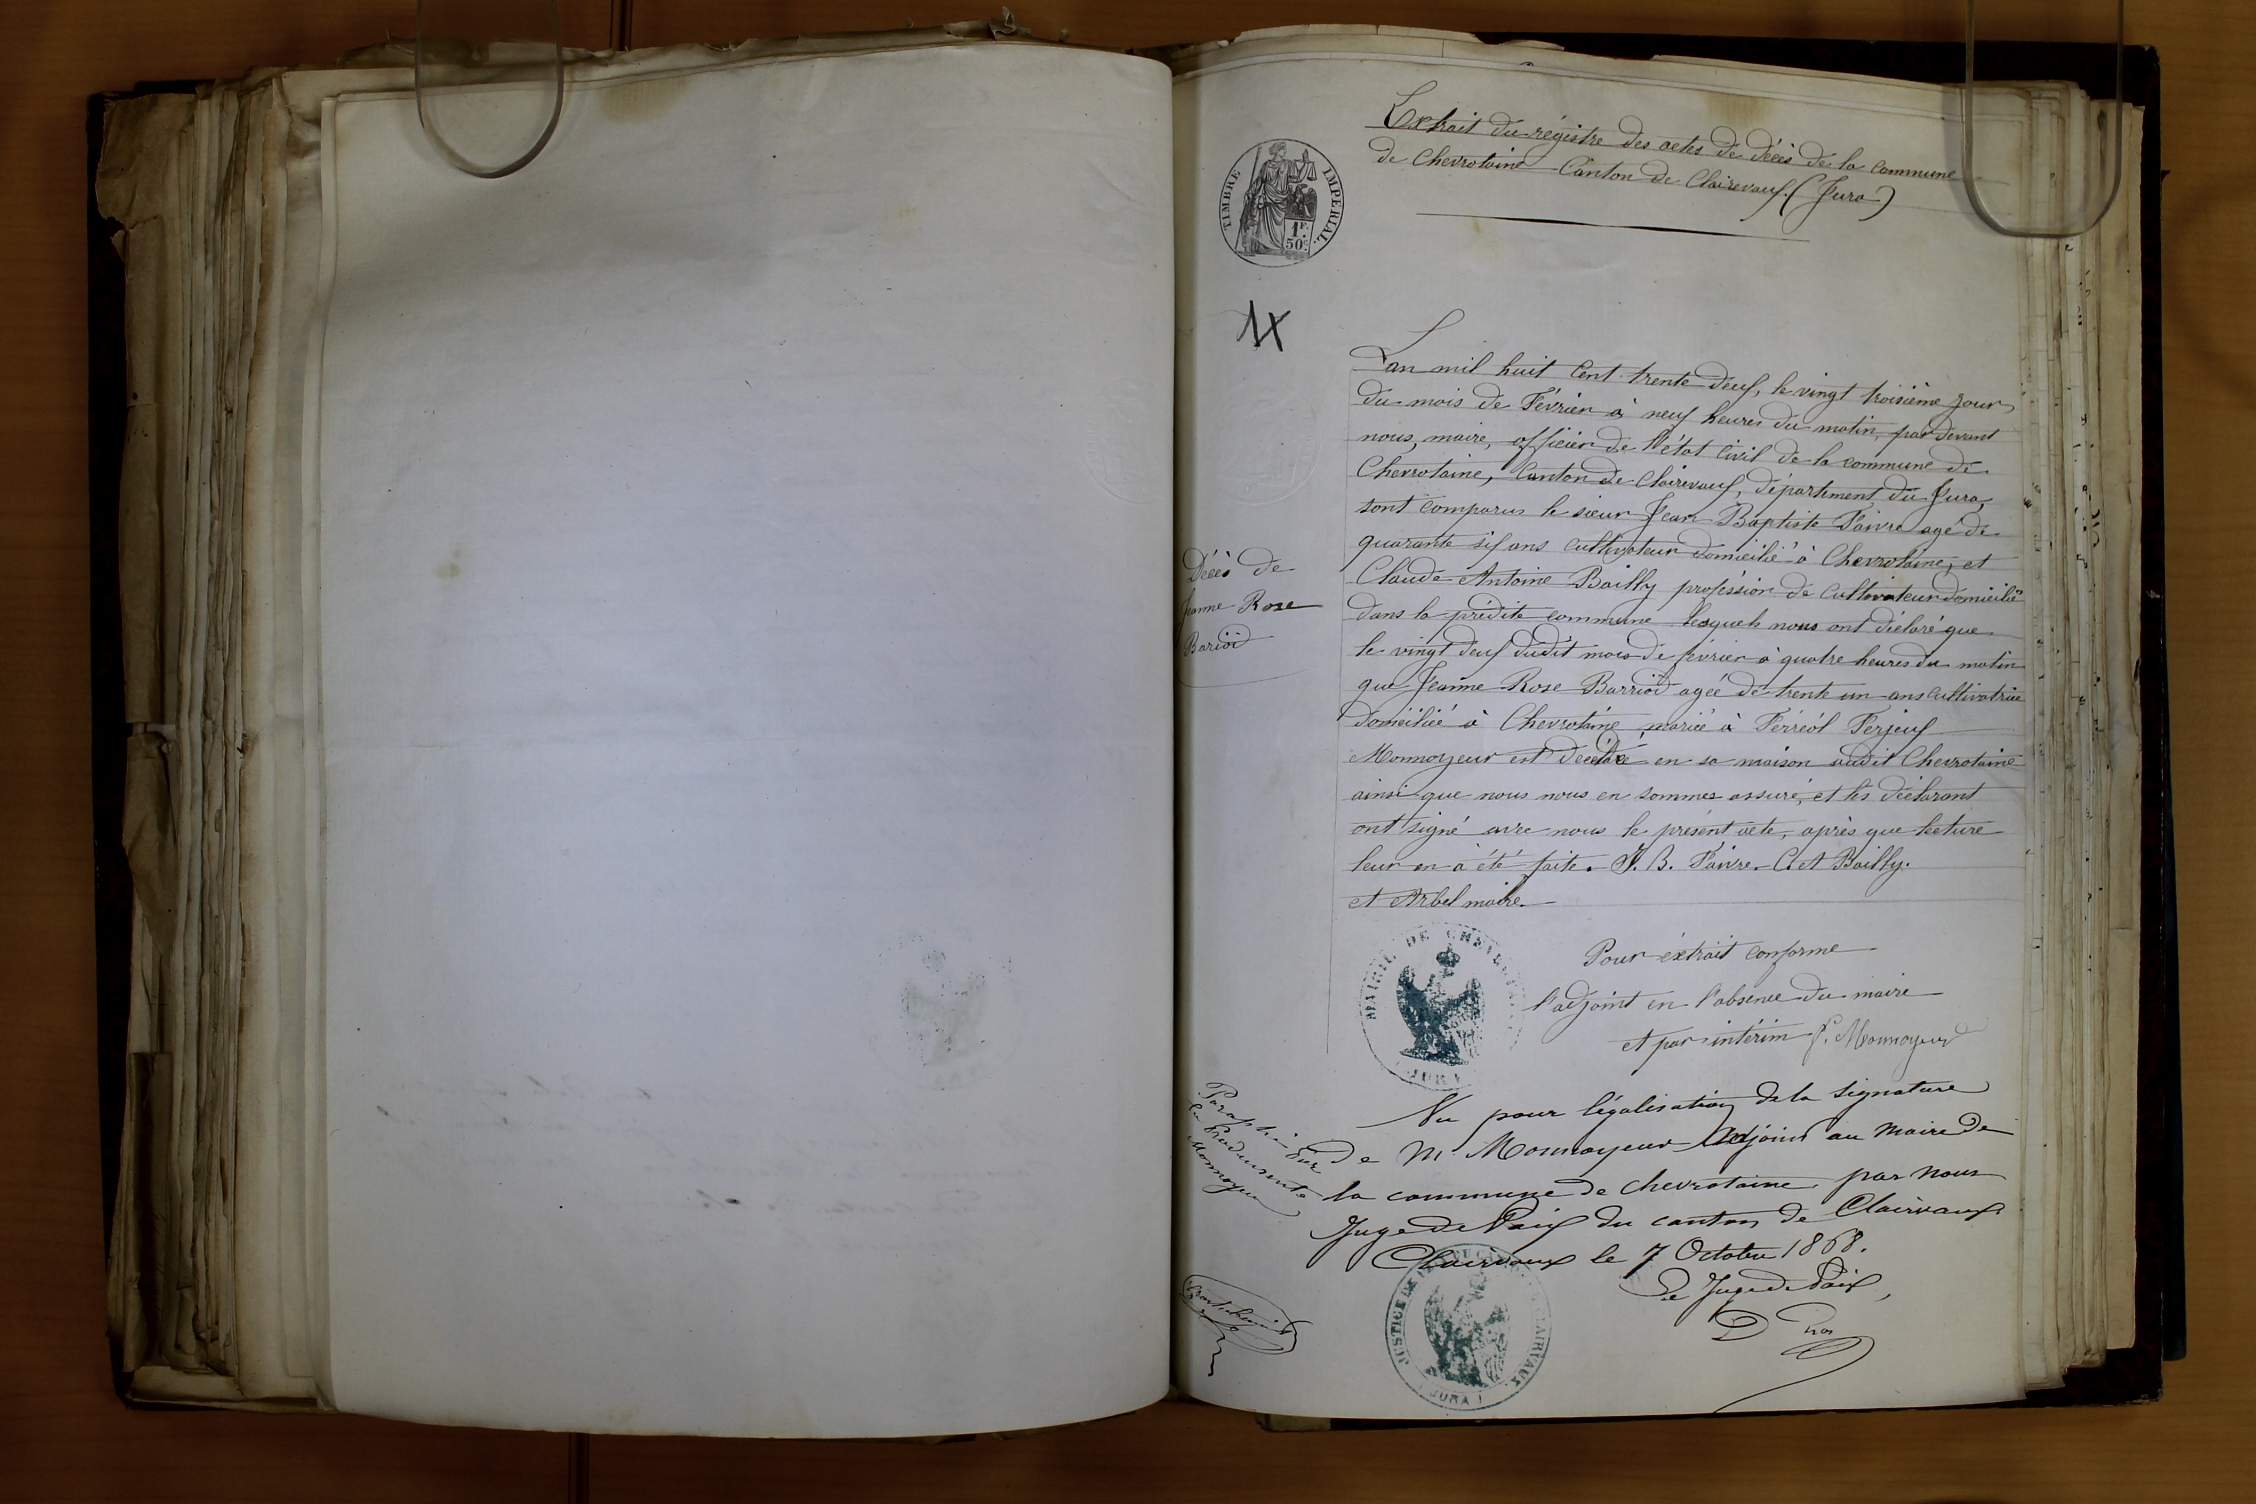 Extrait du régistre des actes de décès de la commune
de Chevrotaine Canton de Clairevaux (Jura)
TIMBRE IMPERIAL
1F.
50C.
Décès de
Jeanne Rose
Bariod
L'an mil huit Cent trente deux, le vingt troisième jour
du mois de Février à neuf heures du matin, par devant
nous, maire, officier de l'état Civil de la commune de
Chevrotaine, Canton de Clairevaux, département du Jura,
sont comparus le sieur Jean Baptiste Faivre agé de
quarante six ans cultivateur domicilié à Chevrotaine, et
Claude Antoine Bailly profession de Cultivateur domicilié
dans la prédite commune lesquels nous ont déclaré que
le vingt deux dudit mois de février à quatre heures du matin
que Jeanne Rose Barriod agée de trente un ans cultivatrice
domiciliée à Chevrotaine, mariée à Ferréol Ferjeux
Monnoyeur est décédée en sa maison audit Chevrotaine
ainsi que nous nous en sommes assuré, et les déclarant
ont signé avec nous le présent acte, après que lecture
leur en à été faite. J. B. Faivre. C A Bailly.
et Arbel maire.
MAIRIE DE CHEVROTAINE
JURA
Pour extrait conforme
l'adjoint en l'absence du maire
et par intérim F. Monnoyeur
Paraphé sur
la
Monnoyeur
Vu pour légalisation de la signature
de M Monnoyeur adjoint au Maire de
la commune de Chevrotaine par nous
Juge de Paix du canton de Clairvaux
Clairvaux le 7 Octobre 1868.
Le Juge de Paix,
JUSTICE DE PAIX DU CANTON DE CLAIRVAUX
(JURA)